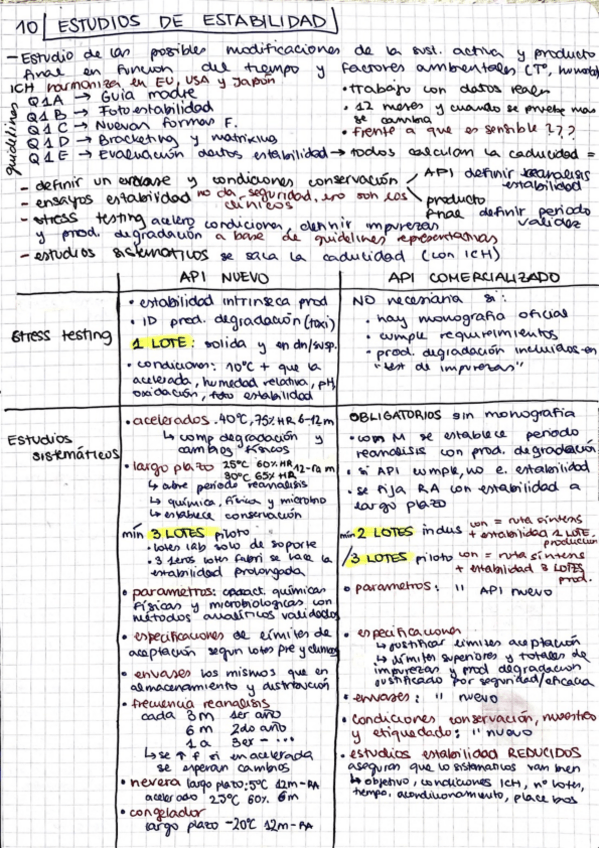 10 ESTUDIOS DE ESTABILIDAD
- Estudio de las posibles modificaciones de la sust. activa y producto
final en funcion del tiempo y factores ambientales (Tº, humedad
ICH harmonizen en EU, USA y Japón
guidelines
Q1A → Guia madre
Q1B → Fotoestabilidad
Q1C → Nuevas formas F.
Q1D → Bracketing y matrixing
Q1E → Evaluación datos estabilidad → todos calculan la caducidad =
• trabajo con datos reales
• 12 meses y cuando se pruebe mas
se cambia
• frente a que es sensible ???
- definir un envase y condiciones conservación
API definir reanalisis
estabilidad
producto
final definir periodo
validez
- ensayos estabilidad no da seguridad, eso son los
clínicos
- stress testing acelero condiciones, definir impurezas
y prod. degradación a base de guidelines representativas
- estudios sistemáticos se saca la caducidad (con ICH)
API NUEVO
API COMERCIALIZADO
Stress testing
• estabilidad intrinseca prod
• ID prod. degradación (toxi)
1 LOTE: solida y en dn/susp.
• condiciones: 10ºC + que la
acelerada, humedad relativa, pH,
oxidación, foto estabilidad
NO necesaria si:
• hay monografia oficial
• cumple requerimientos
• prod. degradación incluidos en
"test de impurezas"
Estudios
sistemáticos
• acelerados 40ºC, 75% HR, 6-12m
↳ comp degradación y
cambios físicos
• largo plazo 25ºC 60% HR 12-RA m
30ºC 65% HR
↳ abre periodo reanalisis
↳ química, física y microbio
↳ establece conservación
min 3 LOTES piloto
• lotes lab solo de soporte
• 3 1eros lotes fabri se hace la
estabilidad prolongada
• parametros: caract. químicas
físicas y microbiologicas con
métodos analíticos validados
• especificaciones de límites de
aceptación segun lotes pre y clinicos
• envases los mismos que en
almacenamiento y distribución
• frecuencia reanalisis
cada 3 m 1er año
6 m 2do año
1 a 3er - ...
↳ se ↑ f si en acelerada
se esperan cambios
• nevera largo plazo: 5ºC 12m-RA
acelerado 25ºC 60% 6m
• congelador
largo plazo -20ºC 12m-RA
OBLIGATORIOS sin monografia
• con M se establece periodo
reanalisis con prod. degradación
• si API cumple, no e. estabilidad
• se fija RA con estabilidad a
largo plazo
min 2 LOTES indus con = ruta síntesis
+ estabilidad 1 LOTE
producción
/3 LOTES piloto con = ruta síntesis
+ estabilidad 3 LOTES
prod.
• parametros: " API nuevo
• especificaciones
↳ justificar límites aceptación
↳ límites superiores y totales de
impurezas y prod degradacion
justificado por seguridad/eficacia
• envases: " nuevo
• condiciones conservación, muestreo
y etiquetado: " nuevo
• estudios estabilidad REDUCIDOS
aseguras que lo sistematicos van bien
↳ objetivo, condiciones ICH, nº lotes,
tiempo, acondicionamiento, placebos